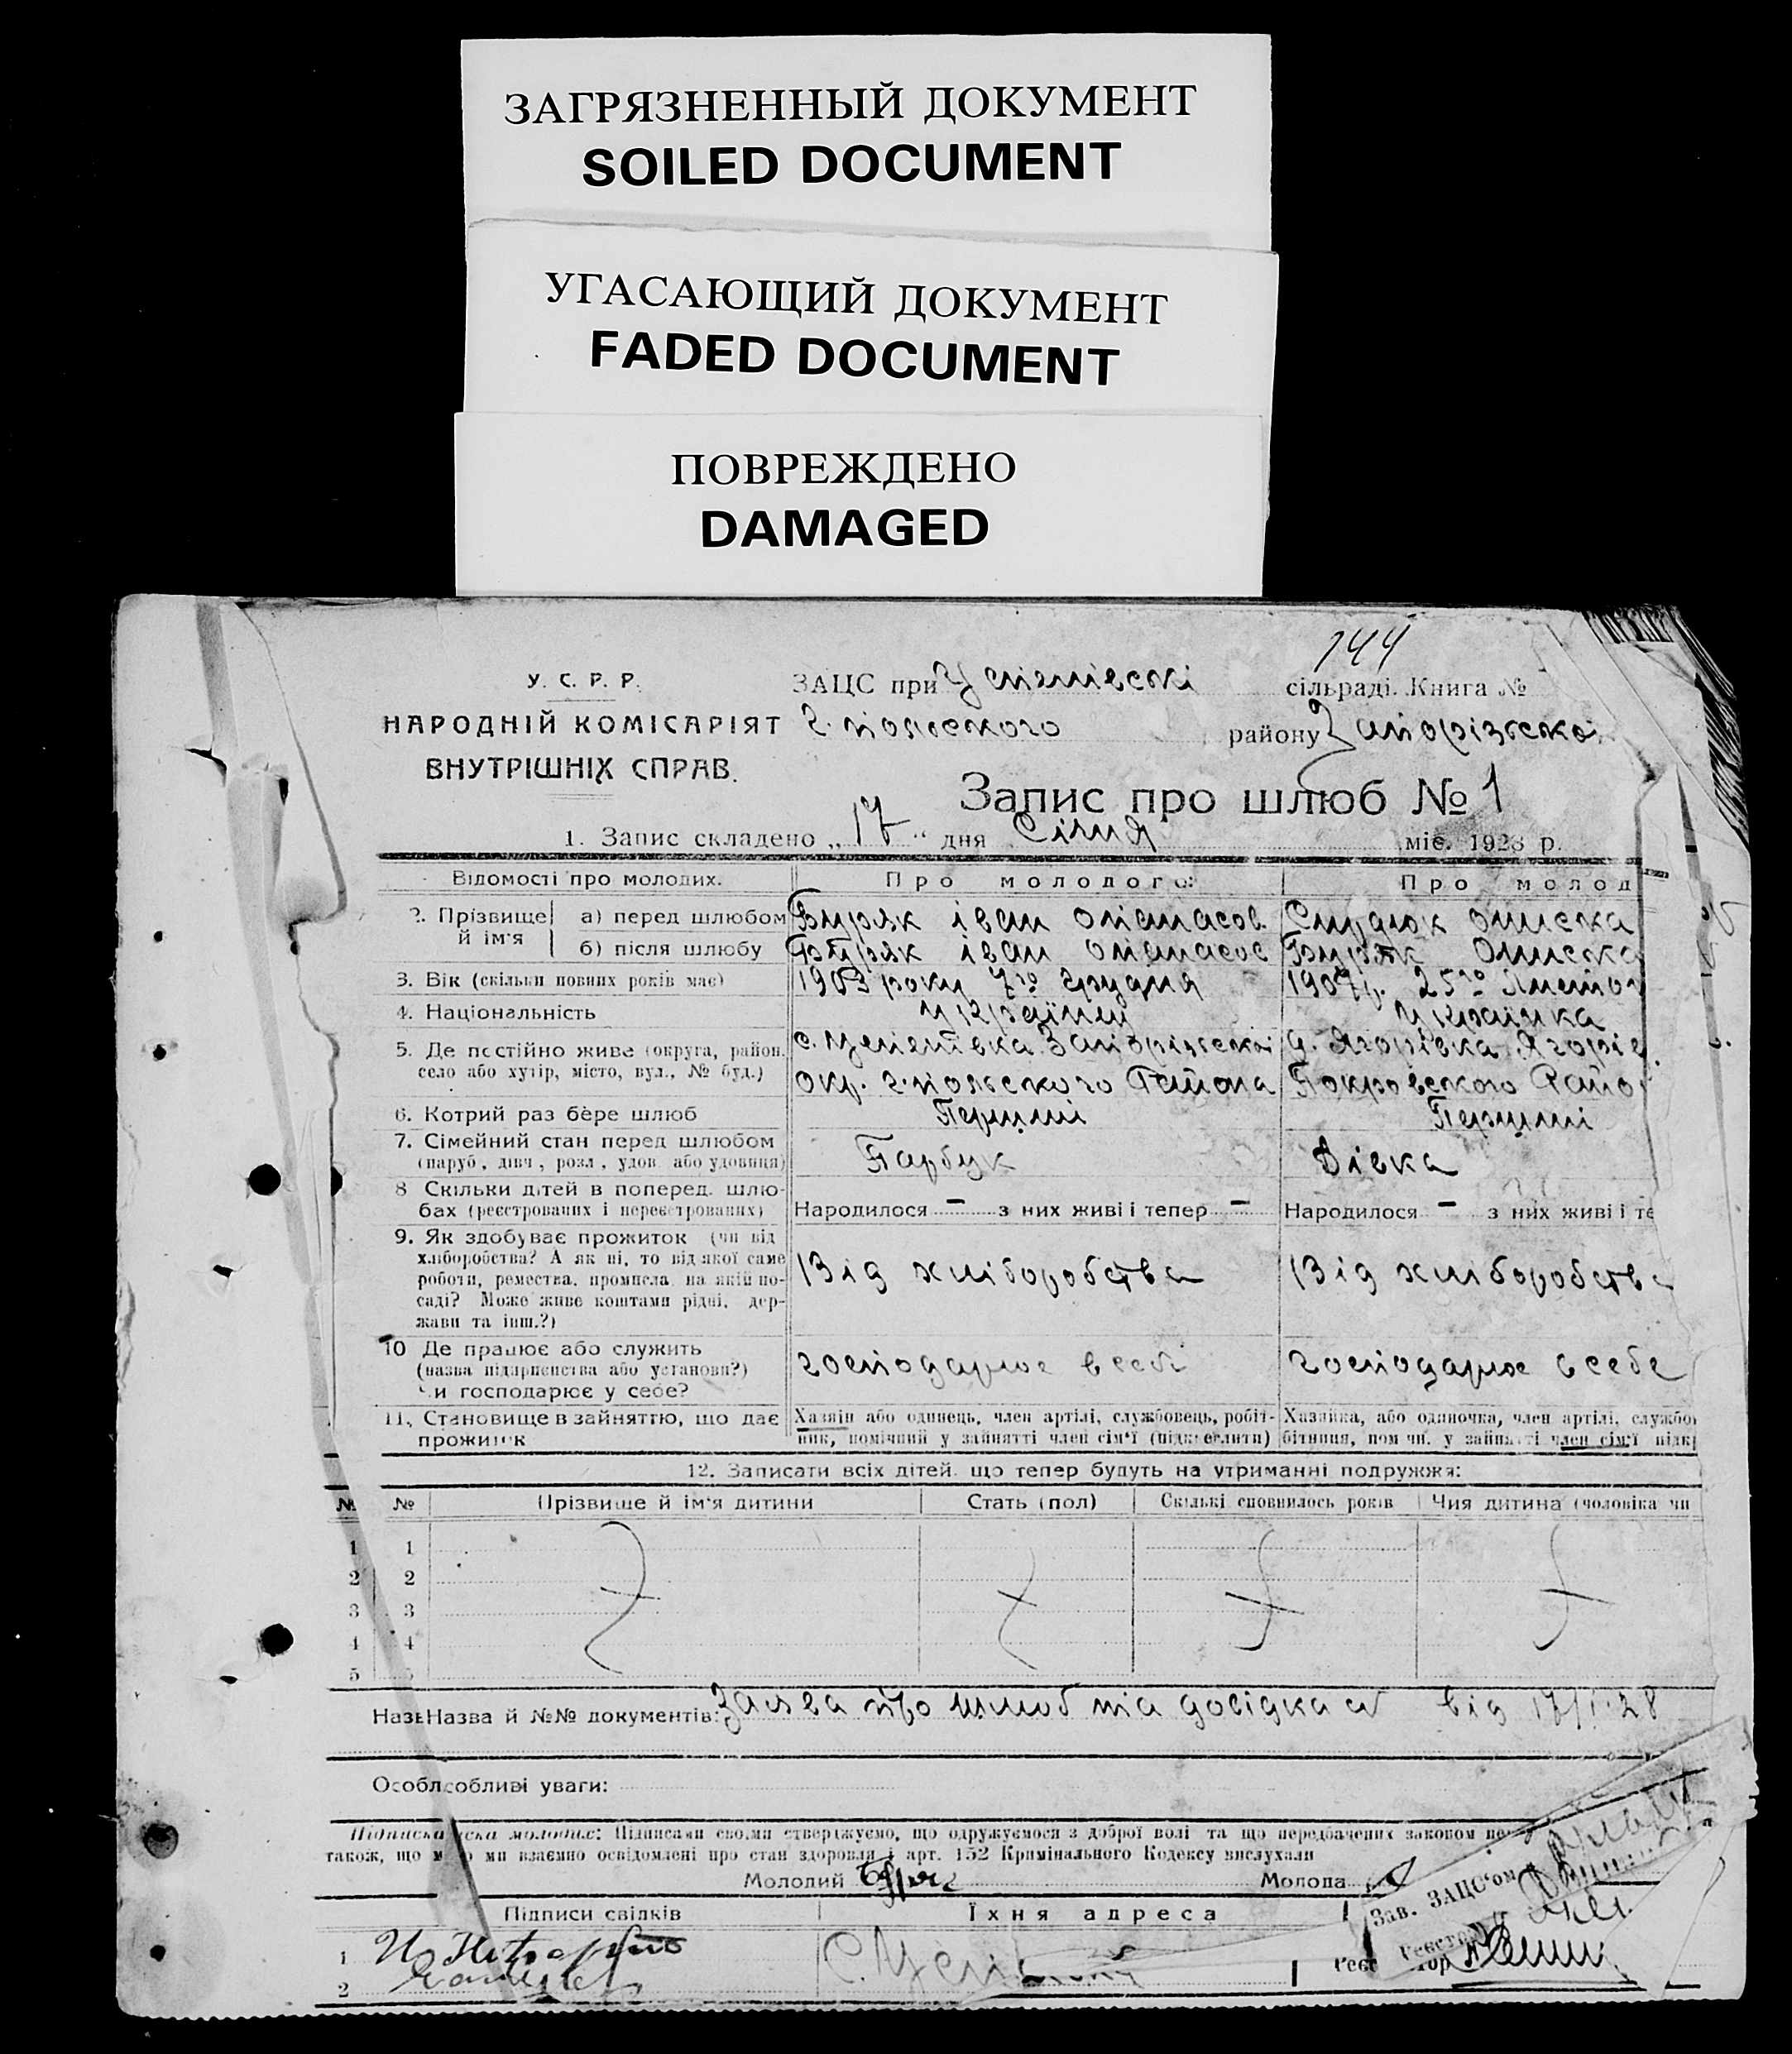 ЗАГРЯЗНЕННЫЙ ДОКУМЕНТ
SOILED DOCUMENT
УГАСАЮЩИЙ ДОКУМЕНТ
FADED DOCUMENT
ПОВРЕЖДЕНО
DAMAGED
144
У. С. Р. Р. ЗАЦС при Успенівські сільраді. Книга №
НАРОДНІЙ КОМІСАРІЯТ Г. польского району Запорізської
ВНУТРІШНІХ СПРАВ.
Запис про шлюб № 1
1. Запис складено „ 17 " дня Січня міс. 1928 р.
Відомості про молодих. Про молодого: Про молод
2. Прізвище й ім'я а) перед шлюбом Буряк іван опанасов. ониска
б) після шлюбу Буряк іван опанасов Буряк Ониска
3. Вік (скільки повних років має) 1903 року 7го грудня 1907 р. 25го
4. Національність Українец Українка
5. Де постійно живе (округа, район, с. Успенівка Запорізської д. Ягорівка Ягорів
село або хутір, місто, вул., № буд.) окр. Г.польского Района Покровского Райо
6. Котрий раз бере шлюб Перший Перший
7. Сімейний стан перед шлюбом
(паруб., дівч., розл., удов. або удовиця) Парубок Дівка
8 Скільки дітей в поперед. шлю-
бах (реєстрованих і нереєстрованих) Народилося – з них живі і тепер – Народилося – з них живі і те
9. Як здобуває прожиток (чи від
хліборобства? А як ні, то від якої саме
роботи, ремества, промисла, на якій по- Від хліборобства Від хліборобства
саді? Може живе коштами рідні, дер-
жави та інш.?)
10 Де працює або служить
(назва підприємства або установи?) господарює в себе господарює в себе
Чи господарює у себе?
11. Становище в зайняттю, що дає Хазяїн або одинець, член артілі, службовець, робіт- Хазяйка, або одиночка, член артілі, службо
прожиток ник, помічний у зайнятті член сім'ї (підкреслити) бітниця, пом чн. у зайнятті член сім'ї підк
12. Записати всіх дітей, що тепер будуть на утриманні подружжя:
№ № Прізвище й ім'я дитини Стать (пол) Скількі сповнилось років Чия дитина (чоловіка чи
1 1
2 2
3 3
4 4
5 5
Назв Назва й №№ документів: Заява про шлюб та довідка від 17/I-28
Особл собливі уваги:
Підписка ска молодих: Підписами своїми стверджуємо, що одружуємося з доброї волі та що передбачених законом пе
також, що м о ми взаємно освідомлені про стан здоровля і арт. 152 Кримінального Кодексу вислухали
Молодий Буряк Молода
Зав. ЗАЦС'ом
Підписи свідків Їхня адреса
1
2
С. Успенівки
Реєстратор